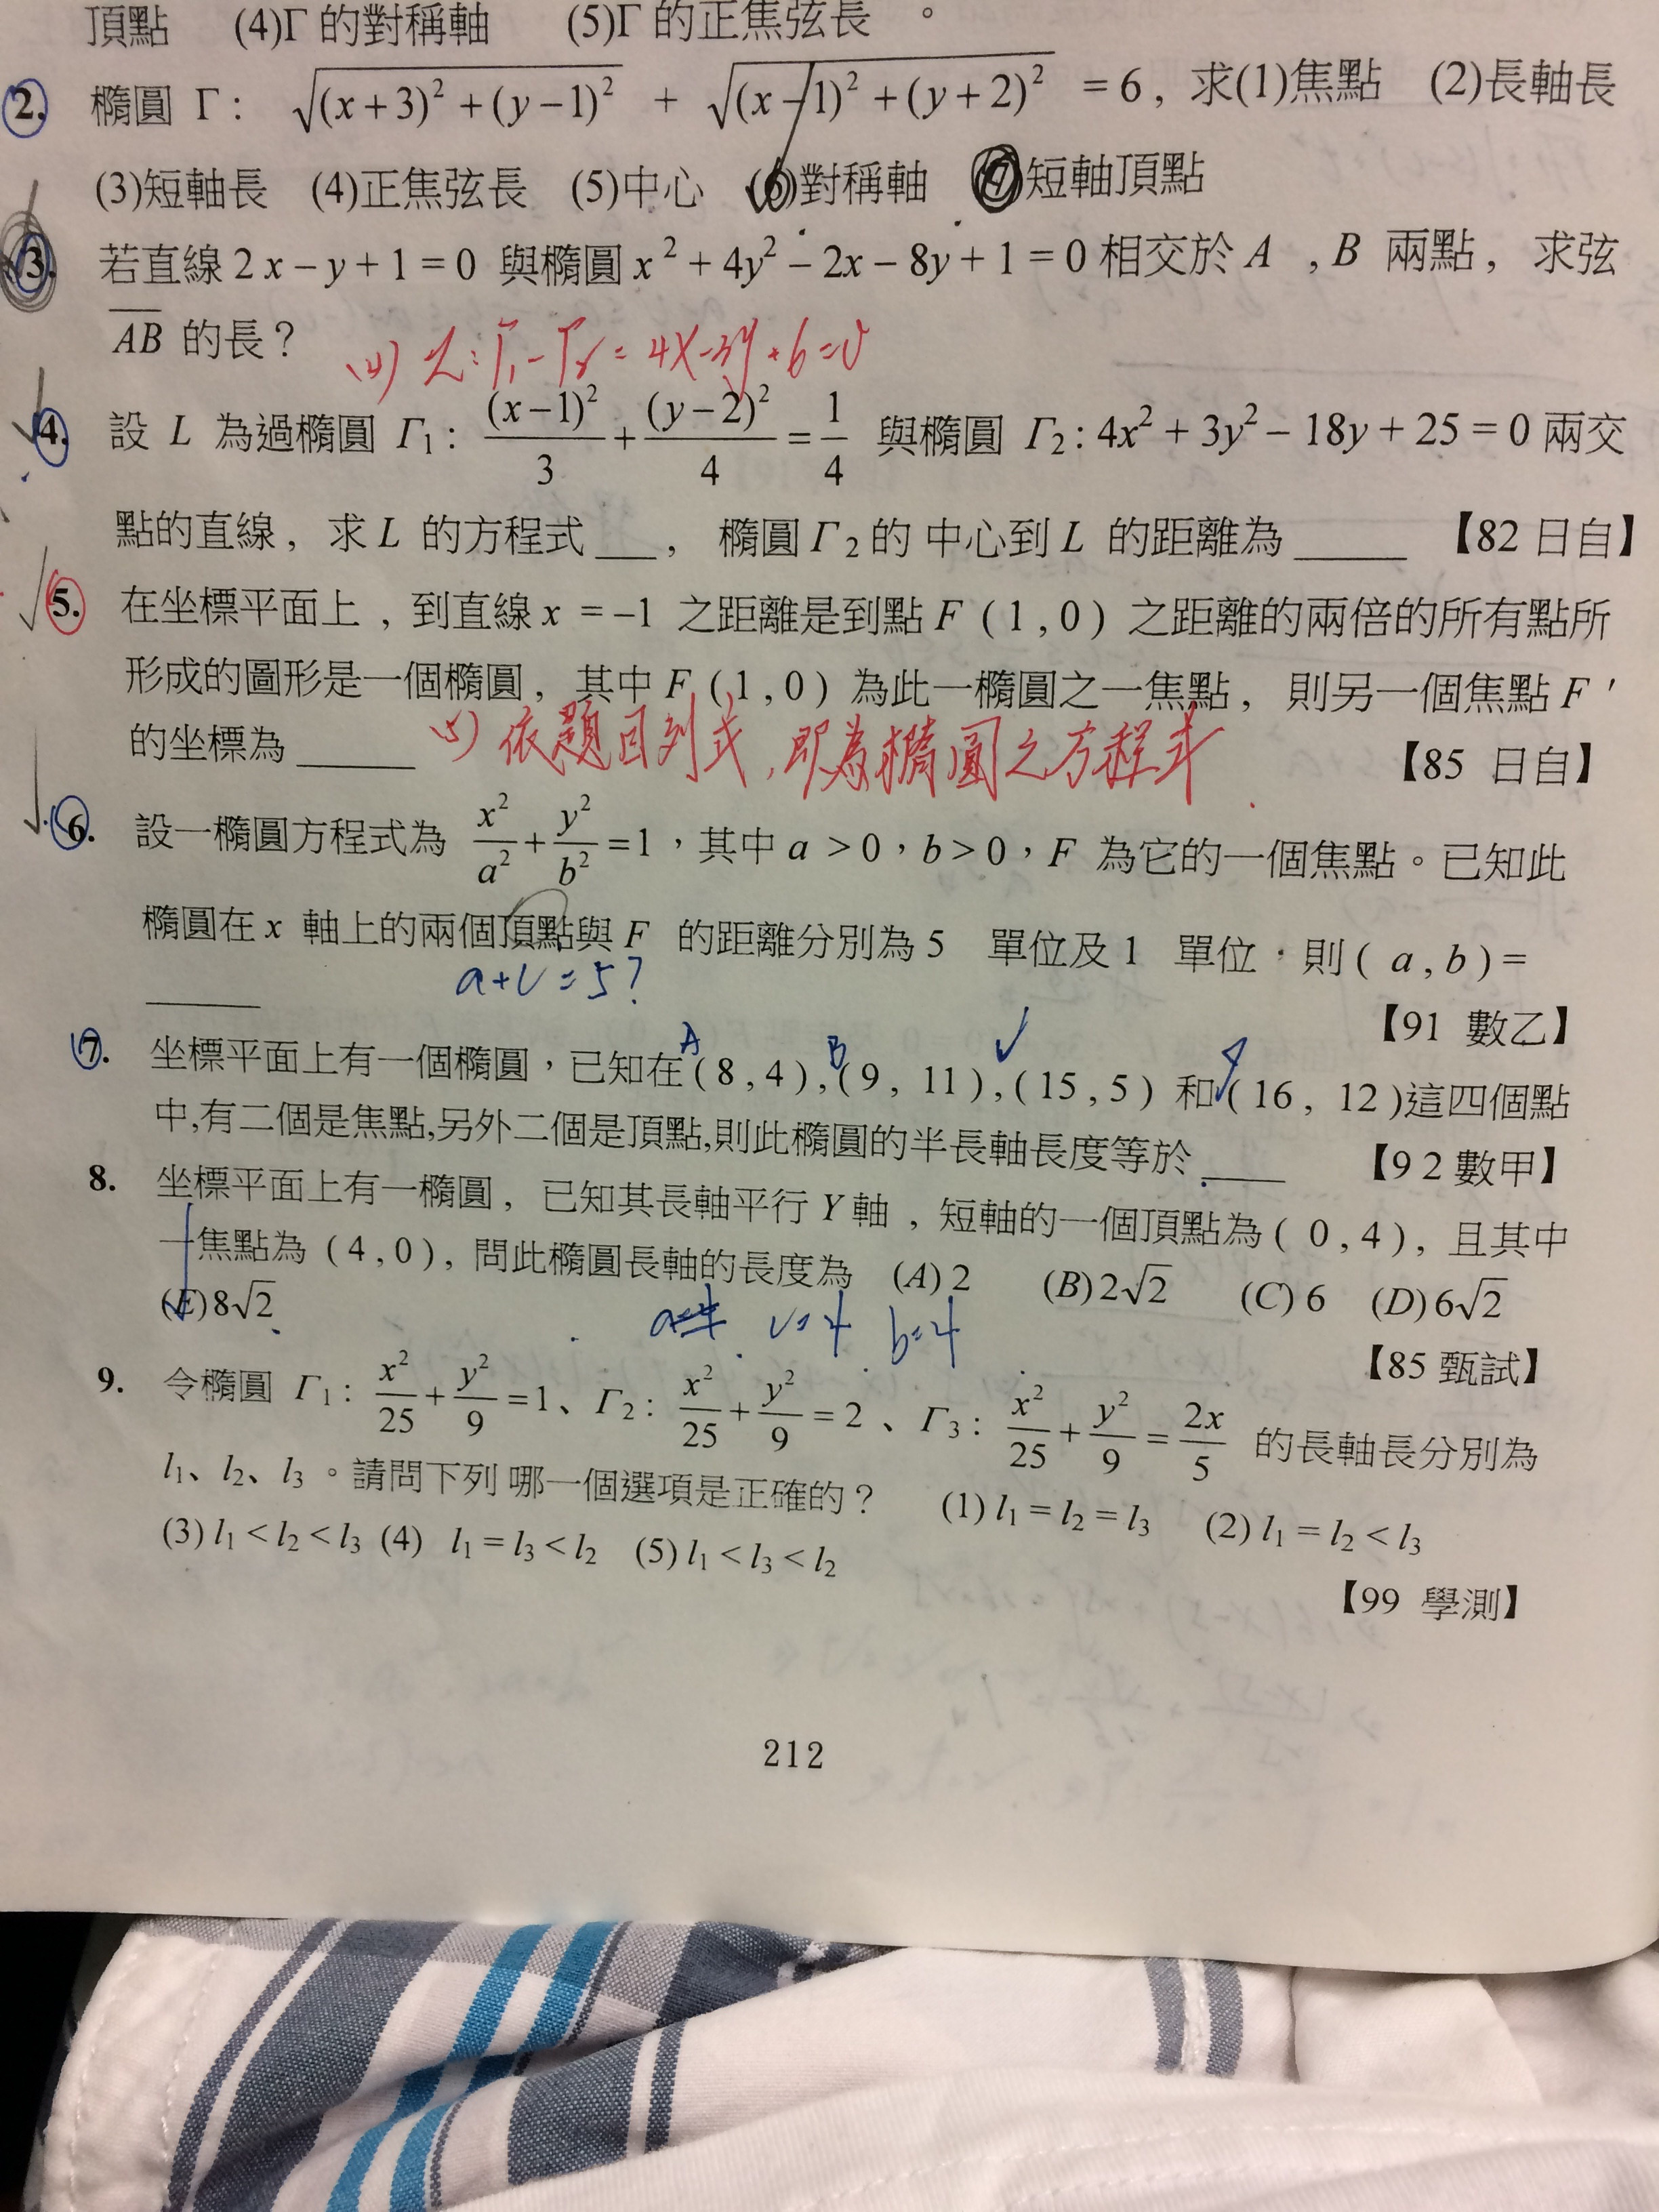 頂點 (4)Γ 的對稱軸 (5)Γ 的正焦弦長 。
2. 橢圓 Γ : √((x+3)² + (y−1)²) + √((x−1)² + (y+2)²) = 6 , 求(1)焦點 (2)長軸長
(3)短軸長 (4)正焦弦長 (5)中心 (6)對稱軸 (7)短軸頂點
3. 若直線 2x − y + 1 = 0 與橢圓 x² + 4y² − 2x − 8y + 1 = 0 相交於 A , B 兩點 , 求弦
AB 的長 ?
(4) L : Γ₁ − Γ₂ = 4x − 3y + 6 = 0
4. 設 L 為過橢圓 Γ₁ : (x−1)²/3 + (y−2)²/4 = 1/4 與橢圓 Γ₂ : 4x² + 3y² − 18y + 25 = 0 兩交
點的直線 , 求 L 的方程式 ___ , 橢圓 Γ₂ 的 中心到 L 的距離為 _____ 【82 日自】
5. 在坐標平面上 , 到直線 x = −1 之距離是到點 F ( 1 , 0 ) 之距離的兩倍的所有點所
形成的圖形是一個橢圓 , 其中 F ( 1 , 0 ) 為此一橢圓之一焦點 , 則另一個焦點 F '
的坐標為 _____ 【85 日自】
(5) 依題目列式 , 即為橢圓之方程式
6. 設一橢圓方程式為 x²/a² + y²/b² = 1 , 其中 a > 0 , b > 0 , F 為它的一個焦點。已知此
橢圓在 x 軸上的兩個頂點與 F 的距離分別為 5 單位及 1 單位 · 則 ( a , b ) =
_____
a + c = 5 ?
【91 數乙】
A B
7. 坐標平面上有一個橢圓 , 已知在 ( 8 , 4 ) , ( 9 , 11 ) , ( 15 , 5 ) 和 ( 16 , 12 )這四個點
中,有二個是焦點,另外二個是頂點,則此橢圓的半長軸長度等於 ____ 【9 2 數甲】
8. 坐標平面上有一橢圓 , 已知其長軸平行 Y 軸 , 短軸的一個頂點為 ( 0 , 4 ) , 且其中
一焦點為 ( 4 , 0 ) , 問此橢圓長軸的長度為 (A) 2 (B) 2√2 (C) 6 (D) 6√2
(E) 8√2
c = 4 b = 4
【85 甄試】
9. 令橢圓 Γ₁ : x²/25 + y²/9 = 1 、 Γ₂ : x²/25 + y²/9 = 2 、 Γ₃ : x²/25 + y²/9 = 2x/5 的長軸長分別為
l₁、l₂、l₃ 。請問下列 哪一個選項是正確的 ? (1) l₁ = l₂ = l₃ (2) l₁ = l₂ < l₃
(3) l₁ < l₂ < l₃ (4) l₁ = l₃ < l₂ (5) l₁ < l₃ < l₂
【99 學測】
212